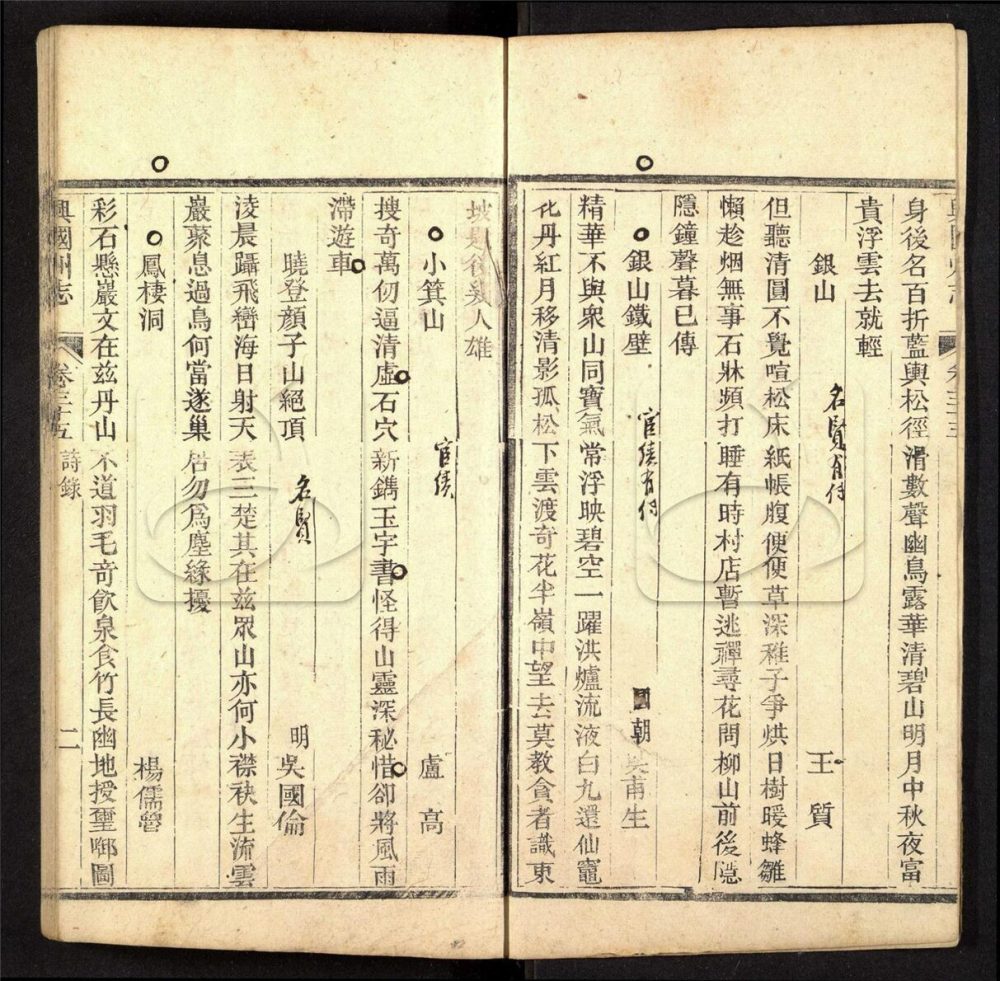 身後名百折藍輿松徑滑數聲幽鳥露華清碧山明月中秋夜富
貴浮雲去就輕
銀山 名賢有付 王質
但聽清圓不覺喧松床紙帳腹便便草深稚子爭烘日樹暖蜂雛
懶趁烟無事石牀頻打睡有時村店暫逃禪尋花問柳山前後隱
隱鐘聲暮已傳
銀山鐵壁 宦績有付 國朝 吳甫生
精華不與衆山同寶氣常浮映碧空一躍洪爐流液白九還仙竈
化丹紅月移清影孤松下雲渡奇花半嶺中望去莫教貪者識東
坡是後 人雄
小箕山 宦績 盧高
搜奇萬仞逼清虛石穴新鐫玉字書怪得山靈深秘惜卻將風雨
滯遊車
曉登顏子山絕頂 名賢 明 吳國倫
淩晨躡飛巒海日射天表三楚其在玆眾山亦何小襟袂生流雲
巖藂息過鳥何當遂巢居勿爲塵緣擾
鳳棲洞 楊儒
彩石懸巖文在玆丹山不道羽毛奇飲泉食竹長幽地授璽啣圖
興國州志 卷三十五 詩錄 二